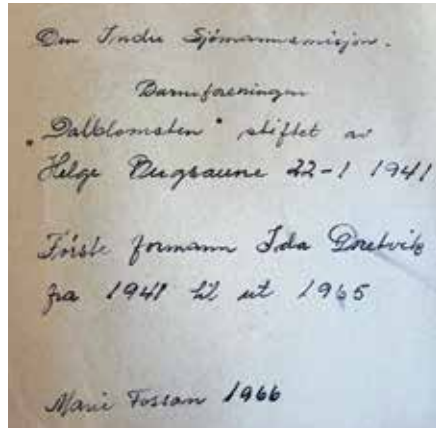 Den Indre Sjömannsmisjon.
Barneforeningen
"Dalblomsten" stiftet av
Helge Bugsaune 22-1 1941
Förste formann Ida Dretvik
fra 1941 til ut 1965
Marie Fossan 1966